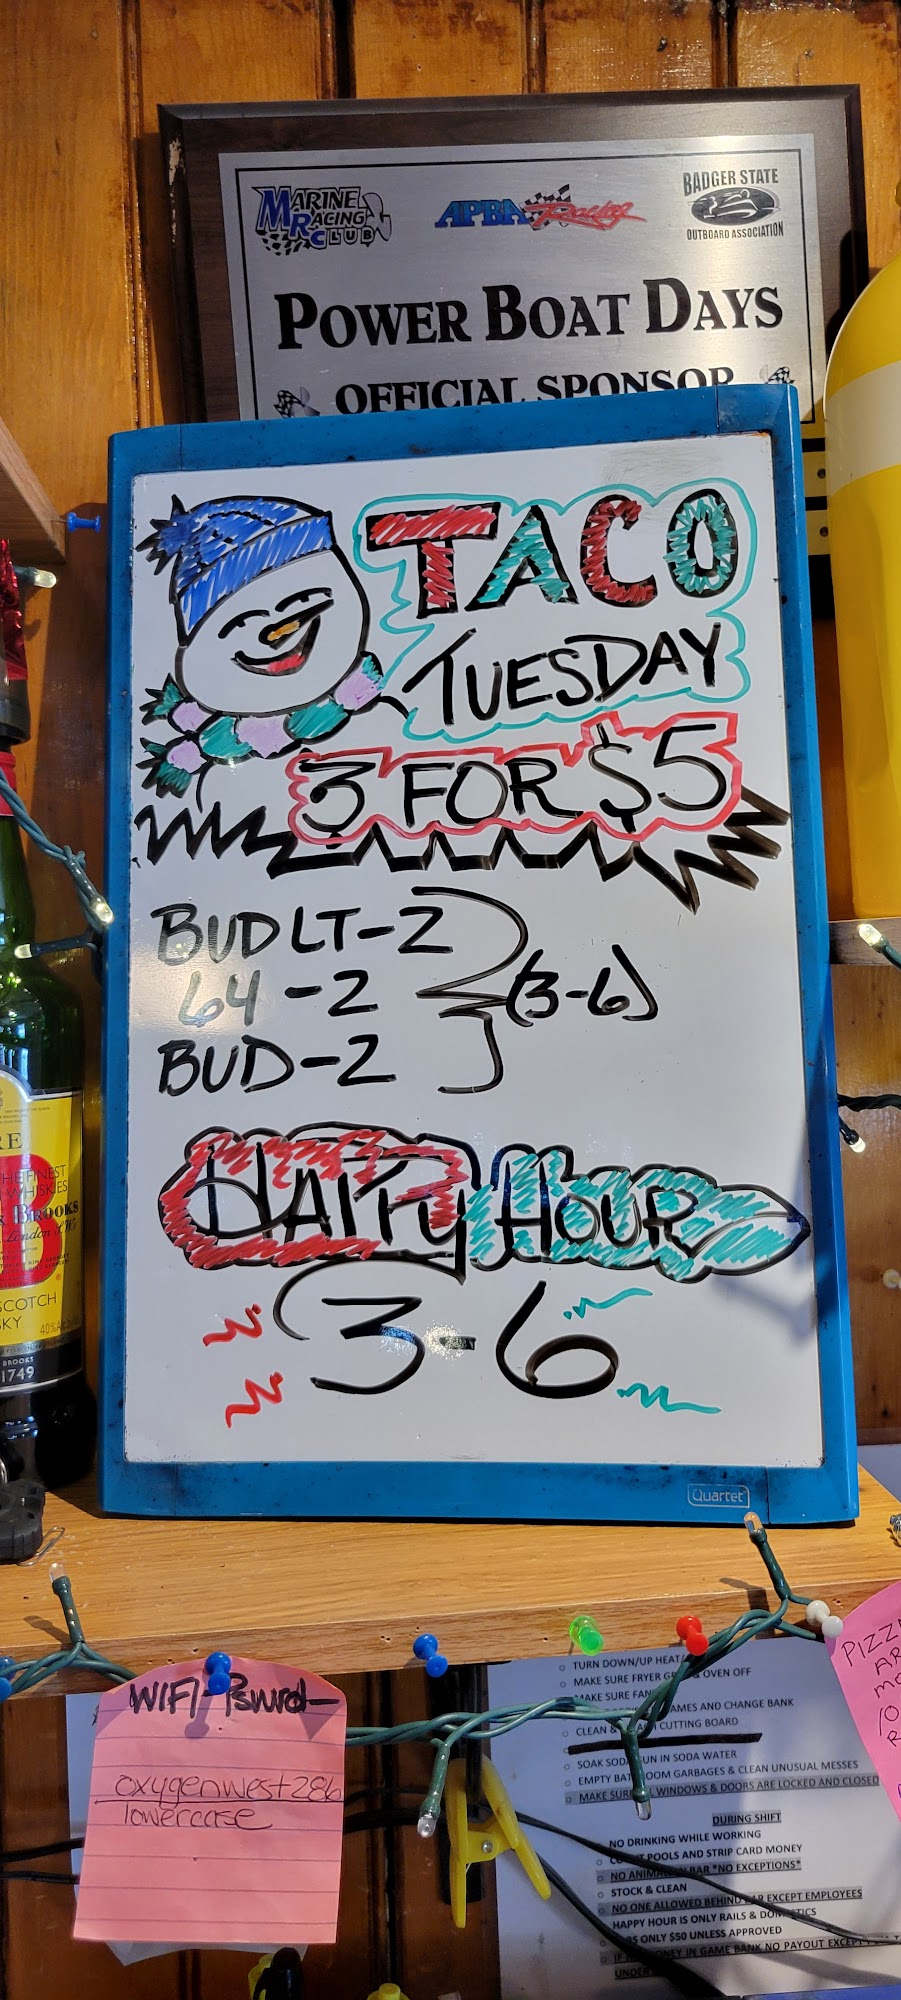 MARINE
RACING
CLUB
APBA Racing
BADGER STATE
OUTBOARD ASSOCIATION
POWER BOAT DAYS
OFFICIAL SPONSOR
TACO
TUESDAY
3 FOR $5
BUD LT-2
64-2
BUD-2
(3-6)
HAPPY HOUR
3-6
Quartet
SCOTCH
BROOKS
1749
WIFI-Pswrd-
oxygenwest286
lowercase
TURN DOWN/UP HEAT/
MAKE SURE FRYER OVEN OFF
MAKE SURE
AMES AND CHANGE BANK
CLEAN & CUTTING BOARD
SOAK SODA GUN IN SODA WATER
EMPTY BATHROOM GARBAGES & CLEAN UNUSUAL MESSES
MAKE SURE WINDOWS & DOORS ARE LOCKED AND CLOSED
DURING SHIFT
NO DRINKING WHILE WORKING
POOLS AND STRIP CARD MONEY
NO ANIMALS IN BAR *NO EXCEPTIONS*
STOCK & CLEAN
NO ONE ALLOWED BEHIND BAR EXCEPT EMPLOYEES
HAPPY HOUR IS ONLY RAILS & DOMESTICS
ONLY $50 UNLESS APPROVED
IF MONEY IN GAME BANK NO PAYOUT EXCEPT
UNDER